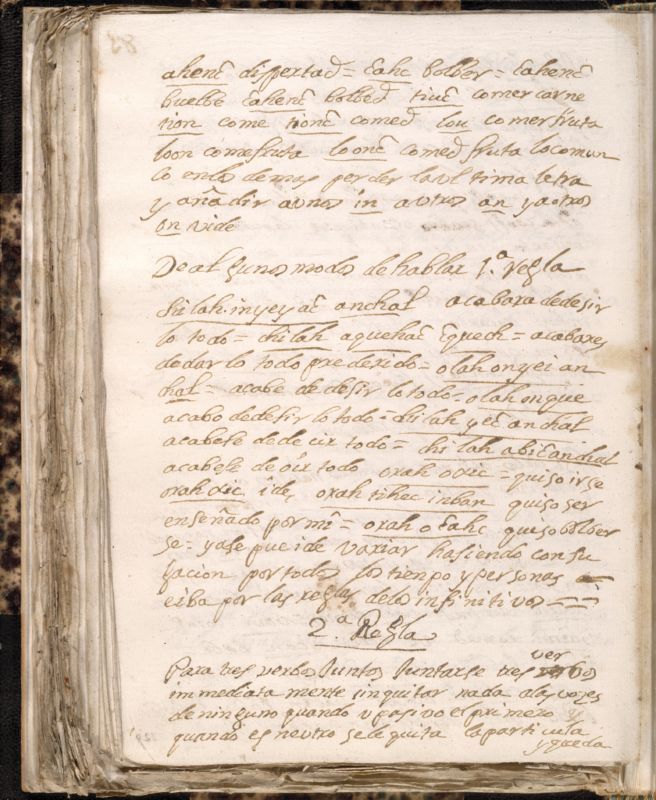 ahenc̃ dispertad = c̃ahc bolber = c̃ahenc̃
buelbe c̃ahenc̃ bolbed tiuc̃ comer carne
tion come tionc̃ comed lou comer fruta
loon comefruta loonc̃ comed fruta locomun
lo en los demas perder la ul tima letra
y añadir aunos in aotros an yaotros
on vide
De al gunos modos de hablar 1.ª regla
chilah inyey ac̃ anchal acabara dedesir
lo todo = chilah aquehac̃ c̃quech = acabares
dedar lo todo prederido = olah onyei an
chal = acabe de desir lo todo = olah onque
acabo dedesir lo todo = chilah yec̃ anchal
acabese dede cir todo = chilah abic̃anchal
acabese de óir todo orah oxic = quiso irse
orah xic ide, orah tihec inban quiso ser
enseñado por mi = orah oc̃ahc quiso bolber
se = yase pue ide variar hasiendo conju
gacion por todos los tienpo y personas
eiba por las reglas delos infinitivos
2.ª Regla
Para tres verbos juntos juntarse tres verbos
immediata mente inquitar nada alas vozes
de ninguno quando u pasivo el primero y
quando es neutro sele quita la particula
y queda